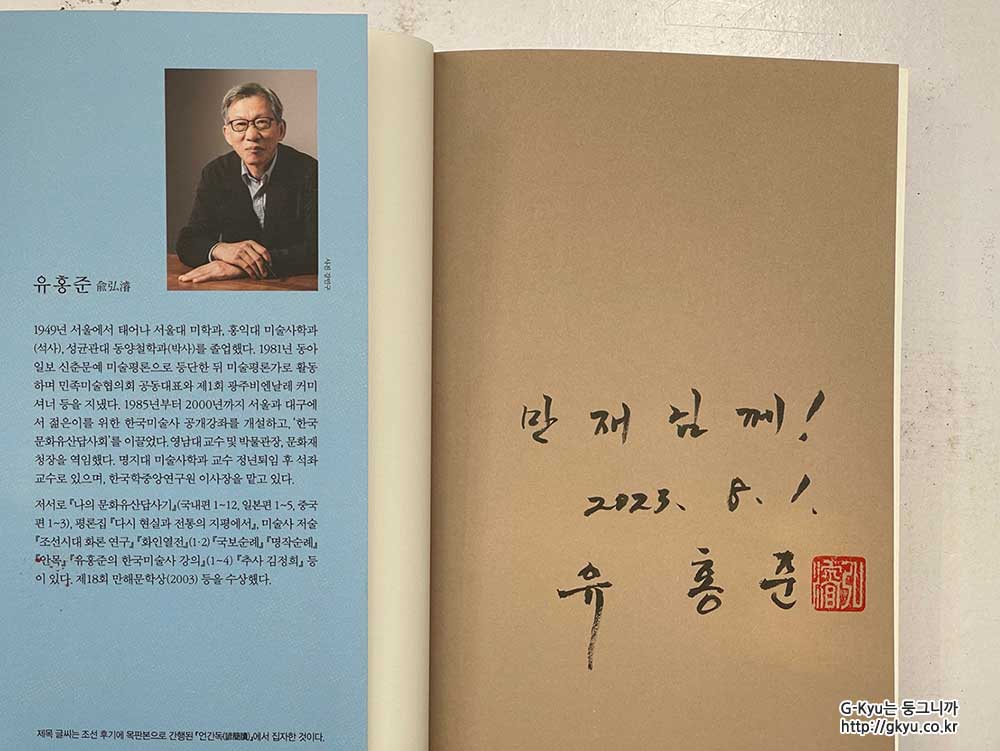 사진 강연구
유홍준 兪弘濬
1949년 서울에서 태어나 서울대 미학과, 홍익대 미술사학과
(석사), 성균관대 동양철학과(박사)를 졸업했다. 1981년 동아
일보 신춘문예 미술평론으로 등단한 뒤 미술평론가로 활동
하며 민족미술협의회 공동대표와 제1회 광주비엔날레 커미
셔너 등을 지냈다. 1985년부터 2000년까지 서울과 대구에
서 젊은이를 위한 한국미술사 공개강좌를 개설하고, '한국
문화유산답사회'를 이끌었다. 영남대 교수 및 박물관장, 문화재
청장을 역임했다. 명지대 미술사학과 교수 정년퇴임 후 석좌
교수로 있으며, 한국학중앙연구원 이사장을 맡고 있다.
저서로 『나의 문화유산답사기』(국내편 1~12, 일본편 1~5, 중국
편 1~3), 평론집 『다시 현실과 전통의 지평에서』, 미술사 저술
『조선시대 화론 연구』 『화인열전』(1·2) 『국보순례』 『명작순례』
『안목』 『유홍준의 한국미술사 강의』(1~4) 『추사 김정희』 등
이 있다. 제18회 만해문학상(2003) 등을 수상했다.
제목 글씨는 조선 후기에 목판본으로 간행된 『언간독(諺簡牘)』에서 집자한 것이다.
만재님께!
2023. 8. 1.
유홍준
弘濬
G-Kyu는 둥그니까
http://gkyu.co.kr